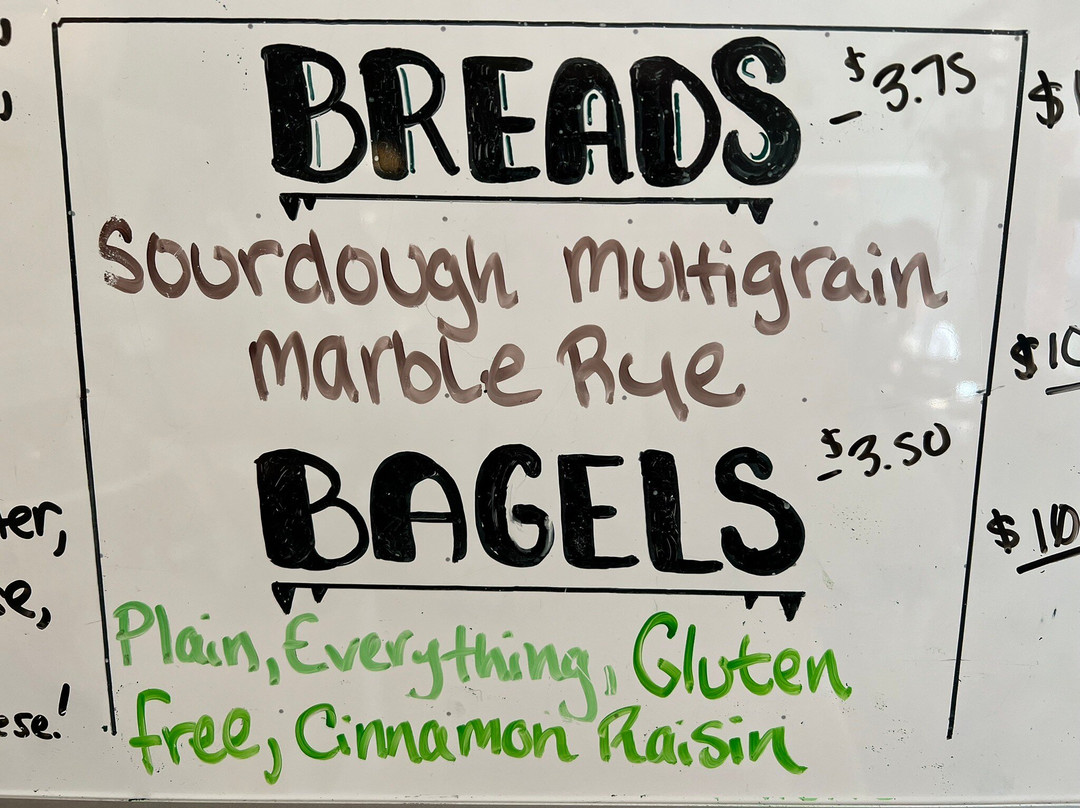 BREADS $3.75
Sourdough Multigrain
Marble Rye
BAGELS $3.50
Plain, Everything, Gluten
free, Cinnamon Raisin